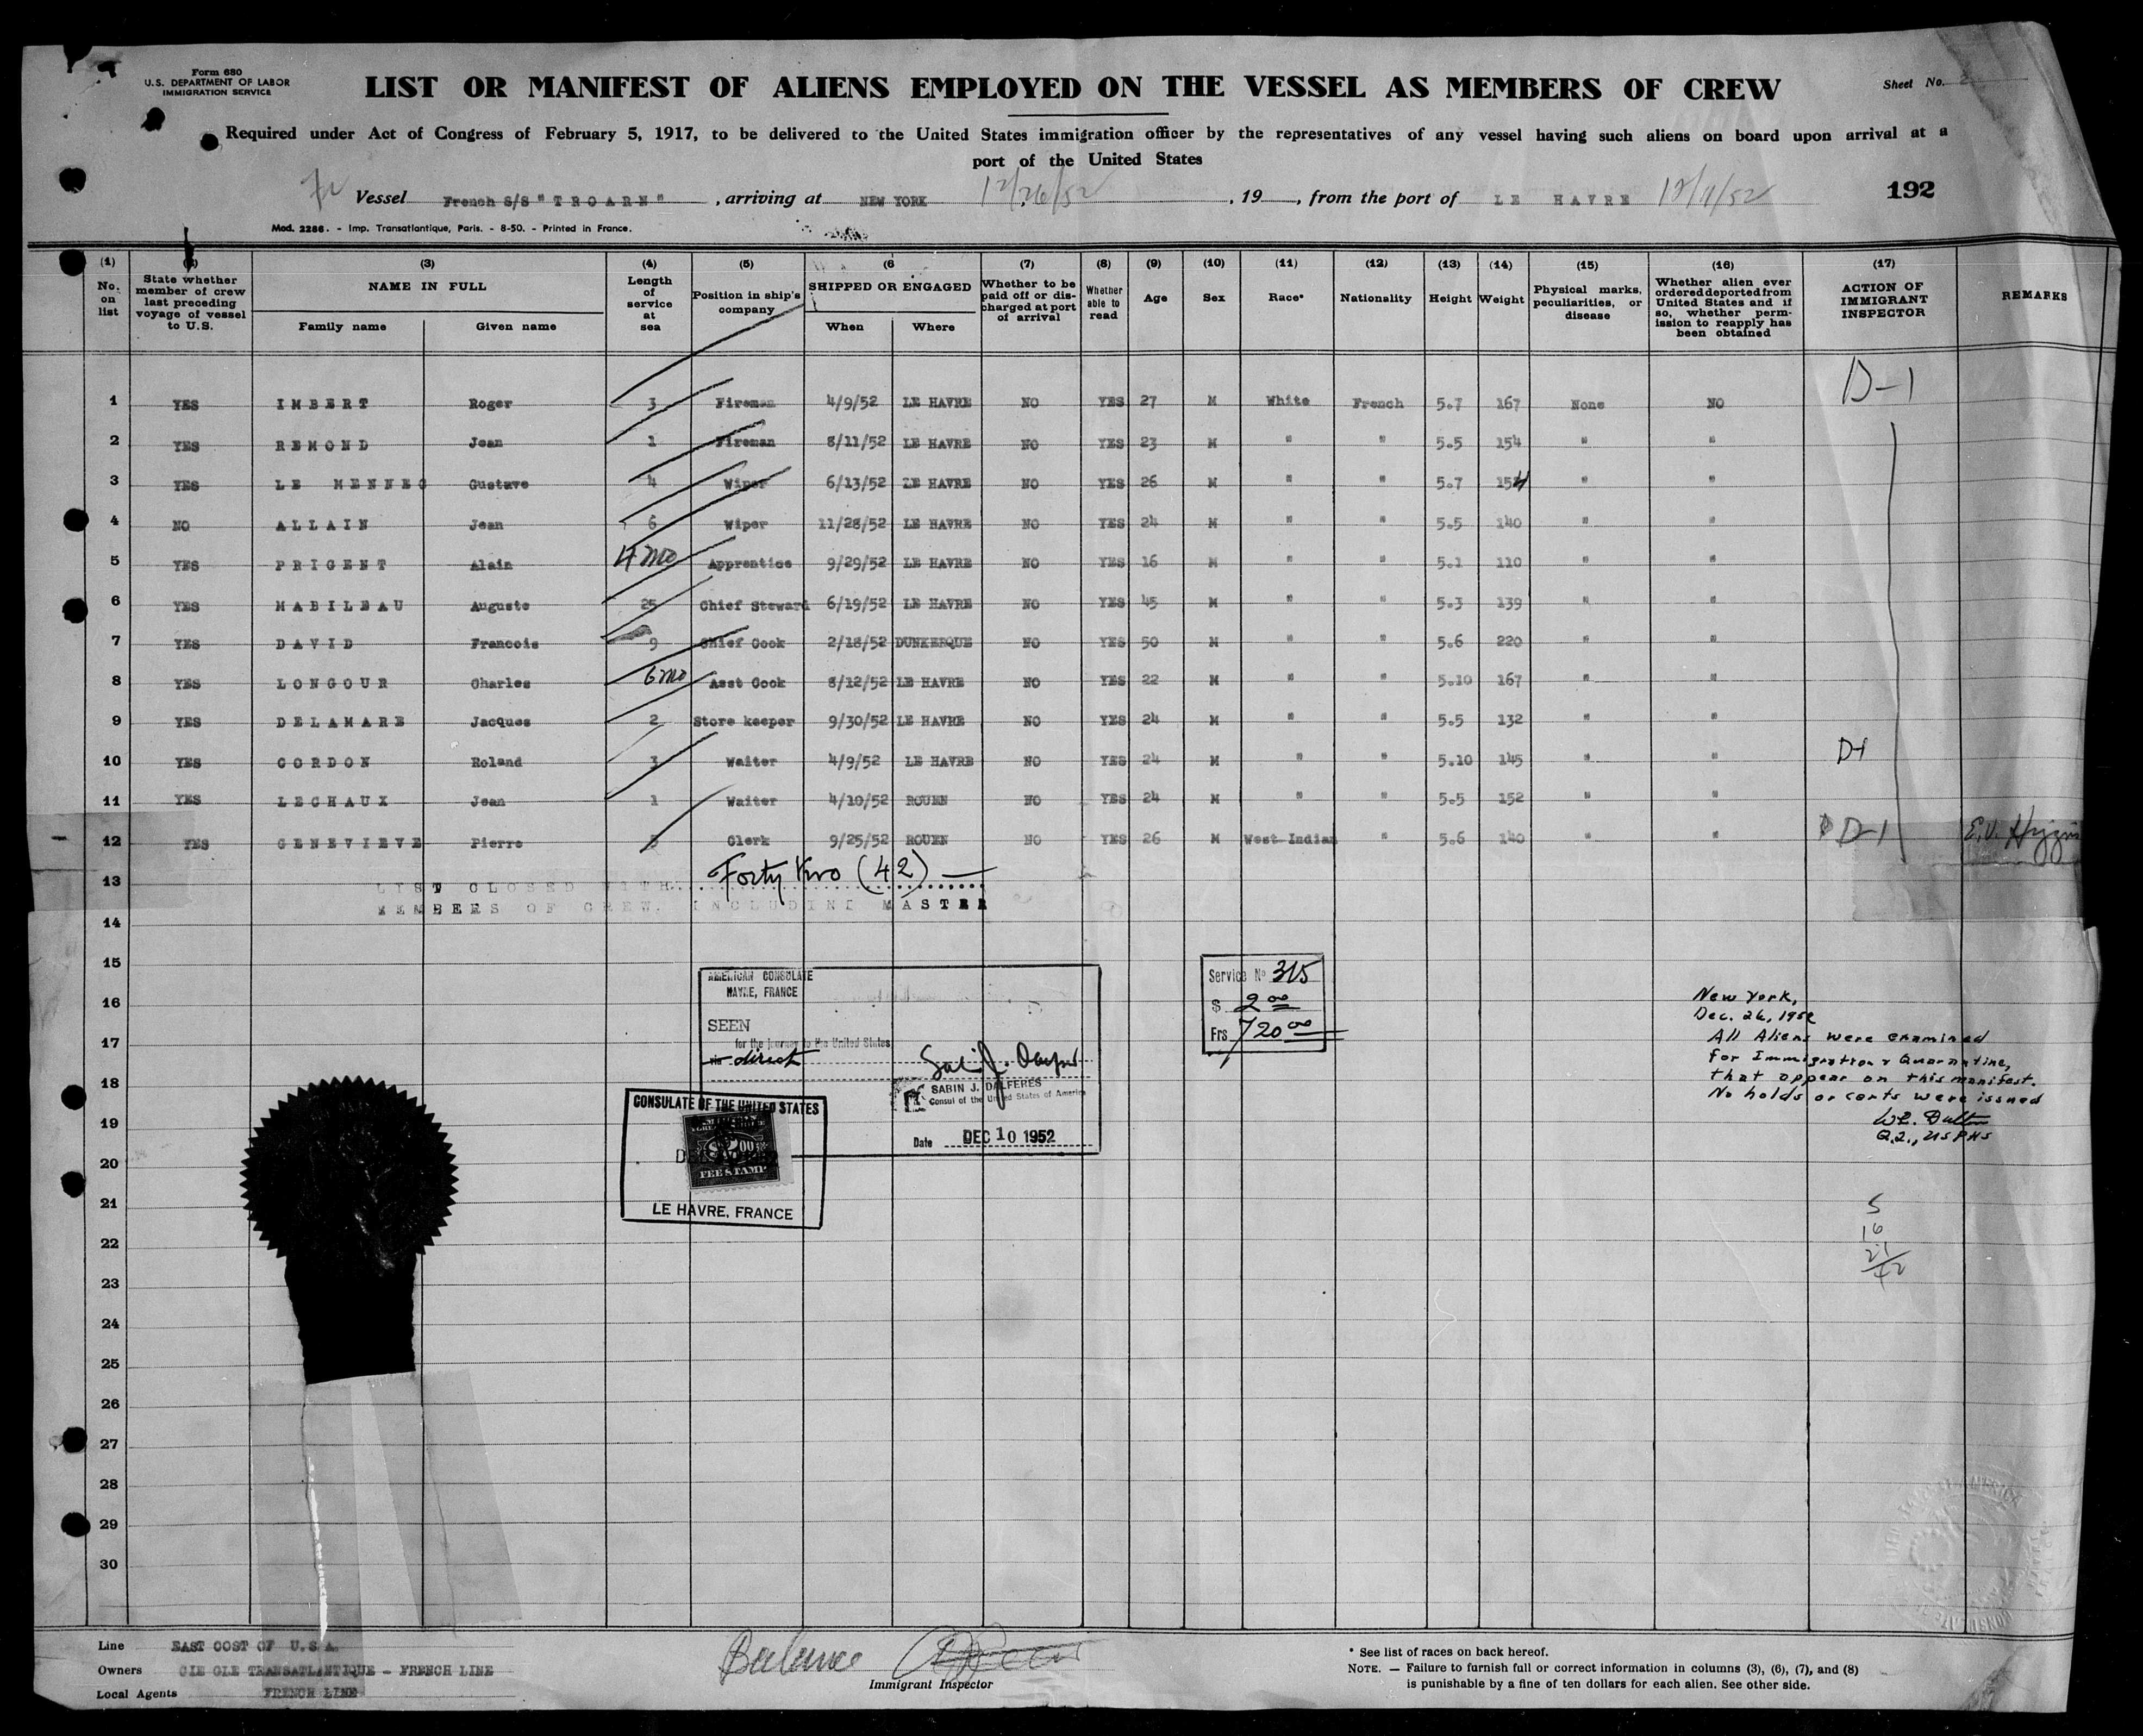 Form 680
U.S. DEPARTMENT OF LABOR
IMMIGRATION SERVICE
LIST OR MANIFEST OF ALIENS EMPLOYED ON THE VESSEL AS MEMBERS OF CREW
Sheet No. 2
Required under Act of Congress of February 5, 1917, to be delivered to the United States immigration officer by the representatives of any vessel having such aliens on board upon arrival at a
port of the United States
Vessel French S/S "TROARN", arriving at NEW YORK 12/26/52, 19, from the port of LE HAVRE 12/11/52 192
Mod. 2286. - Imp. Transatlantique, Paris. - 8-50. - Printed in France.
(1) No. on list
(2) State whether member of crew last preceding voyage of vessel to U.S.
(3) NAME IN FULL Family name Given name
(4) Length of service at sea
(5) Position in ship's company
(6 SHIPPED OR ENGAGED When Where
(7) Whether to be paid off or discharged at port of arrival
(8) Whether able to read
(9) Age
(10) Sex
(11) Race*
(12) Nationality
(13) Height
(14) Weight
(15) Physical marks, peculiarities, or disease
(16) Whether alien ever ordered deported from United States and if so, whether permission to reapply has been obtained
(17) ACTION OF IMMIGRANT INSPECTOR
REMARKS
1 YES IMBERT Roger 3 Fireman 4/9/52 LE HAVRE NO YES 27 M White French 5.7 167 None NO D-1
2 YES REMOND Jean 1 Fireman 8/11/52 LE HAVRE NO YES 23 M " " 5.5 154 " "
3 YES LE MENNEC Gustave 4 Wiper 6/13/52 LE HAVRE NO YES 26 M " " 5.7 154 " "
4 NO ALLAIN Jean 6 Wiper 11/28/52 LE HAVRE NO YES 24 M " " 5.5 140 " "
5 YES PRIGENT Alain 4 mo Apprentice 9/29/52 LE HAVRE NO YES 16 M " " 5.1 110 " "
6 YES MABILEAU Auguste 25 Chief Steward 6/19/52 LE HAVRE NO YES 45 M " " 5.3 139 " "
7 YES DAVID Francois 9 Chief Cook 2/18/52 DUNKERQUE NO YES 50 M " " 5.6 220 " "
8 YES LONGOUR Charles 6 mo Asst Cook 8/12/52 LE HAVRE NO YES 22 M " " 5.10 167 " "
9 YES DELAMARE Jacques 2 Store keeper 9/30/52 LE HAVRE NO YES 24 M " " 5.5 132 " "
10 YES CORDON Roland 3 Waiter 4/9/52 LE HAVRE NO YES 24 M " " 5.10 145 " " D-1
11 YES LECHAUX Jean 1 Waiter 4/10/52 ROUEN NO YES 24 M " " 5.5 152 " "
12 YES GENEVIEVE Pierre 5 Clerk 9/25/52 ROUEN NO YES 26 M West Indian " 5.6 140 " " D-1 E.V. Higgins
13 LIST CLOSED WITH Forty two (42)
MEMBERS OF CREW, INCLUDING MASTER
14
15
16
17
18
19
20
21
22
23
24
25
26
27
28
29
30
AMERICAN CONSULATE
HAVRE, FRANCE
SEEN
for the journey to the United States
via direct
SABIN J. DALFERES
Consul of the United States of America
Date DEC 10 1952
Service No 315
$ 2 00
Frs 720 00
CONSULATE OF THE UNITED STATES
FEE STAMP
LE HAVRE, FRANCE
New York,
Dec. 26, 1952
All Aliens were examined
for Immigration & Quarantine,
that appear on this manifest.
No holds or certs were issued
W.E. Dutton
Q.I., USPHS
5
16
21
42
Line EAST COST OF U.S.A.
Owners CIE GLE TRANSATLANTIQUE - FRENCH LINE
Local Agents FRENCH LINE
Balance
Immigrant Inspector
* See list of races on back hereof.
NOTE. — Failure to furnish full or correct information in columns (3), (6), (7), and (8)
is punishable by a fine of ten dollars for each alien. See other side.